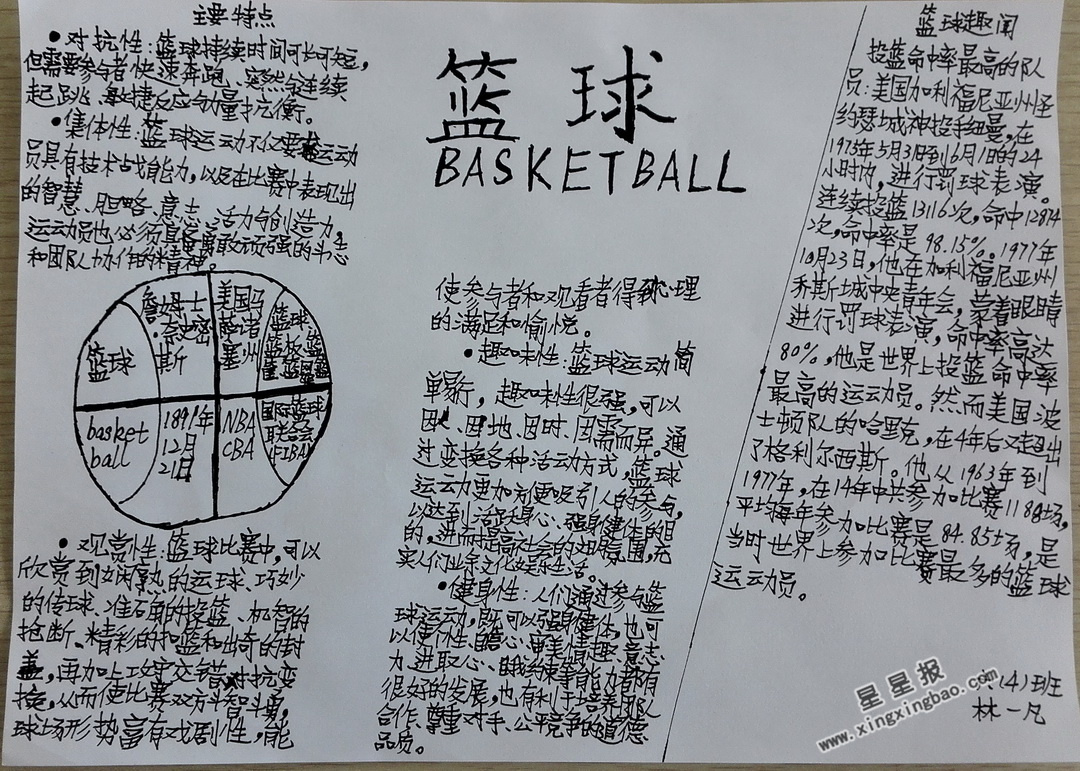 主要特点
•对抗性:篮球持续时间可长可短,
但需要参与者快速奔跑、突然与连续
起跳、敏捷反应与力量抗衡。
•集体性:篮球运动不仅要求运动
员具有技术占戈能力,以及在比赛中表现出
的智慧、胆略、意志、活力与创造力,
运动员也必须具勇敢顽强的斗志
和团队协作的精神。
篮球
詹姆士
·奈史密
斯
美国马
萨诸
塞州
篮球
篮板
basket
ball
1891年
12月
21日
NBA
CBA
国际篮球
联合会
(FIBA)
•观赏性:篮球比赛中,可以
欣赏到娴熟的运球、巧妙
的传球、准确的投篮、机智的
抢断、精彩的扣篮和出奇的封
盖,再加上攻守交错,对抗变
换,从而使比赛双方斗智斗勇,
球场形势富有戏剧性,能
篮球
BASKETBALL
使参与者和观看者得到心理
的满足和愉悦。
•趣味性:篮球运动简
单易行,趣味性很强,可以
因人、因地、因时、因需而异。通
过变换各种活动方式,篮球
运动更加方便吸引人的参与,
以达到活跃身心、强身健体的目
的,进而提高社会的文明氛围,充
实人们业余文化娱乐生活。
•健身性:人们通过参与篮
球运动,既可以强身健体,也可
以使个性、自信心、审美情趣、意志
力、进取心、自我约束等能力都有
很好的发展,也有利于培养团队
合作、尊重对手、公平竞争的道德
品质。
篮球趣闻
投篮命中率最高的队
员:美国加利福尼亚州圣
约瑟城神投手纽曼,在
1975年5月31日到6月1日的24
小时内,进行罚球表演。
连续投篮13116次,命中12874
次,命中率是98.15%。1977年
10月23日,他在加利福尼亚州
利斯城中央青年会,蒙着眼睛
进行罚球表演,命中率高达
80%,他是世界上投篮命中率
最高的运动员。然而美国波
士顿队的哈里克,在4年后又超出
了格利尔西斯。他从1963年到
1977年,在14年中共参加比赛1188场,
平均每年参加比赛是84.85场,是
当时世界上参加比赛最多的篮球
运动员。
(4)班
林一凡
星星报
www.xingxingbao.com